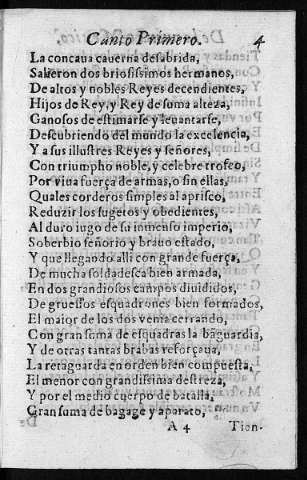 Canto Primero. 4
La concaua cauerna desabrida,
Salieron dos briosissimos hermanos,
De altos y nobles Reyes decendientes,
Hijos de Rey, y Rey de suma alteza,
Ganosos de estimarse y leuantarse,
Descubriendo del mundo la excelencia,
Y a sus illustres Reyes y señores,
Con triumpho noble, y celebre trofeo,
Por viua fuerça de armas, o sin ellas,
Quales corderos simples al aprisco,
Reduzir los sugetos y obedientes,
Al duro iugo de su inmenso imperio,
Soberbio señorio y brauo estado,
Y que llegando alli con grande fuerça,
De mucha soldadesca bien armada,
En dos grandiosos campos diuididos,
De gruessos esquadrones bien formados,
El maior de los dos venia cerrando,
Con gran suma de esquadras la bãguardia,
Y de otras tantas brabas reforçaua,
La retaguarda en orden bien compuesta,
El menor con grandissima destreza,
Y por el medio cuerpo de batalla,
Gran suma de bagage y aparato,
A 4 Tien-